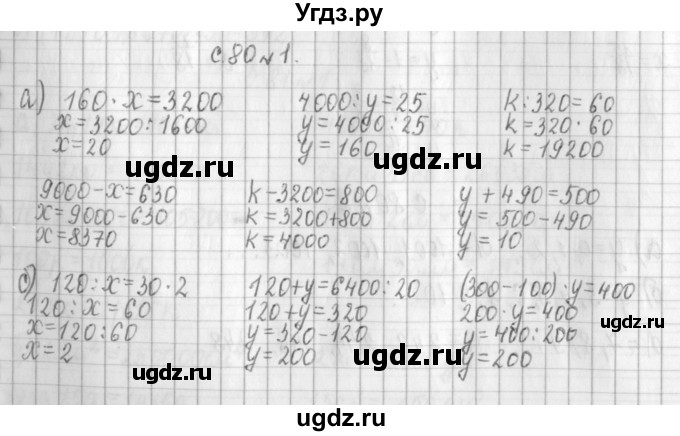 Угдз.ру
с.80 №1.
а) 160 · x = 3200 4000 : y = 25 k : 320 = 60
x = 3200 : 1600 y = 4000 : 25 k = 320 · 60
x = 20 y = 160 k = 19200
ugdz.ru ugdz.ru
9000 - x = 630 k - 3200 = 800 y + 490 = 500
x = 9000 - 630 k = 3200 + 800 y = 500 - 490
x = 8370 k = 4000 y = 10
с) 120 : x = 30 · 2 120 + y = 6400 : 20 (300 - 100) · y = 400
120 : x = 60 120 + y = 320 200 · y = 400
ugdz.ru
x = 120 : 60 y = 320 - 120 y = 400 : 200
x = 2 y = 200 y = 200
ugdz.ru ugdz.ru
ugdz.ru